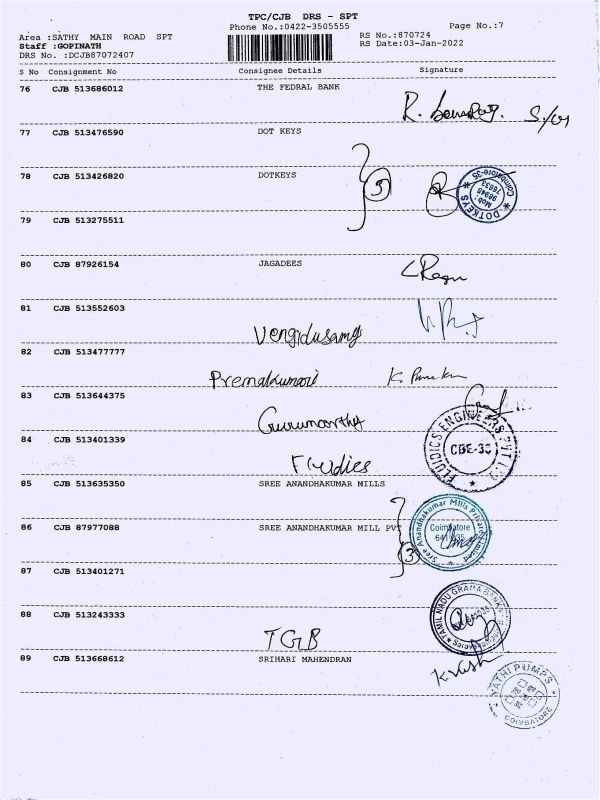 TPC/CJB DRS - SPT
Phone No.:0422-3505555
Page No.:7
Area :SATHY MAIN ROAD SPT
RS No.:870724
Staff :GOPINATH
RS Date:03-Jan-2022
DRS No. :DCJB87072407
S No Consignment No Consignee Details Signature
76 CJB 513686012 THE FEDRAL BANK
77 CJB 513476590 DOT KEYS
78 CJB 513426820 DOTKEYS
3
DOTKEYS
Coimbatore-35
Mob
79 CJB 513275511
80 CJB 87926154 JAGADEES
81 CJB 513552603
Vengidusamy
82 CJB 513477777
Premakumari
83 CJB 513644375
Gurumoorthy
84 CJB 513401339
Fluidics
FLUIDICS ENGINEERS PVT LTD
CBE-35
85 CJB 513635350 SREE ANANDHAKUMAR MILLS
86 CJB 87977088 SREE ANANDHAKUMAR MILL PVT
3
Sree Anandhakumar Mills Private Limited
Coimbatore
641 035
87 CJB 513401271
88 CJB 513243333
TGB
TAMIL NADU GRAMA BANK
89 CJB 513668612 SRIHARI MAHENDRAN
PUMPS
COIMBATORE